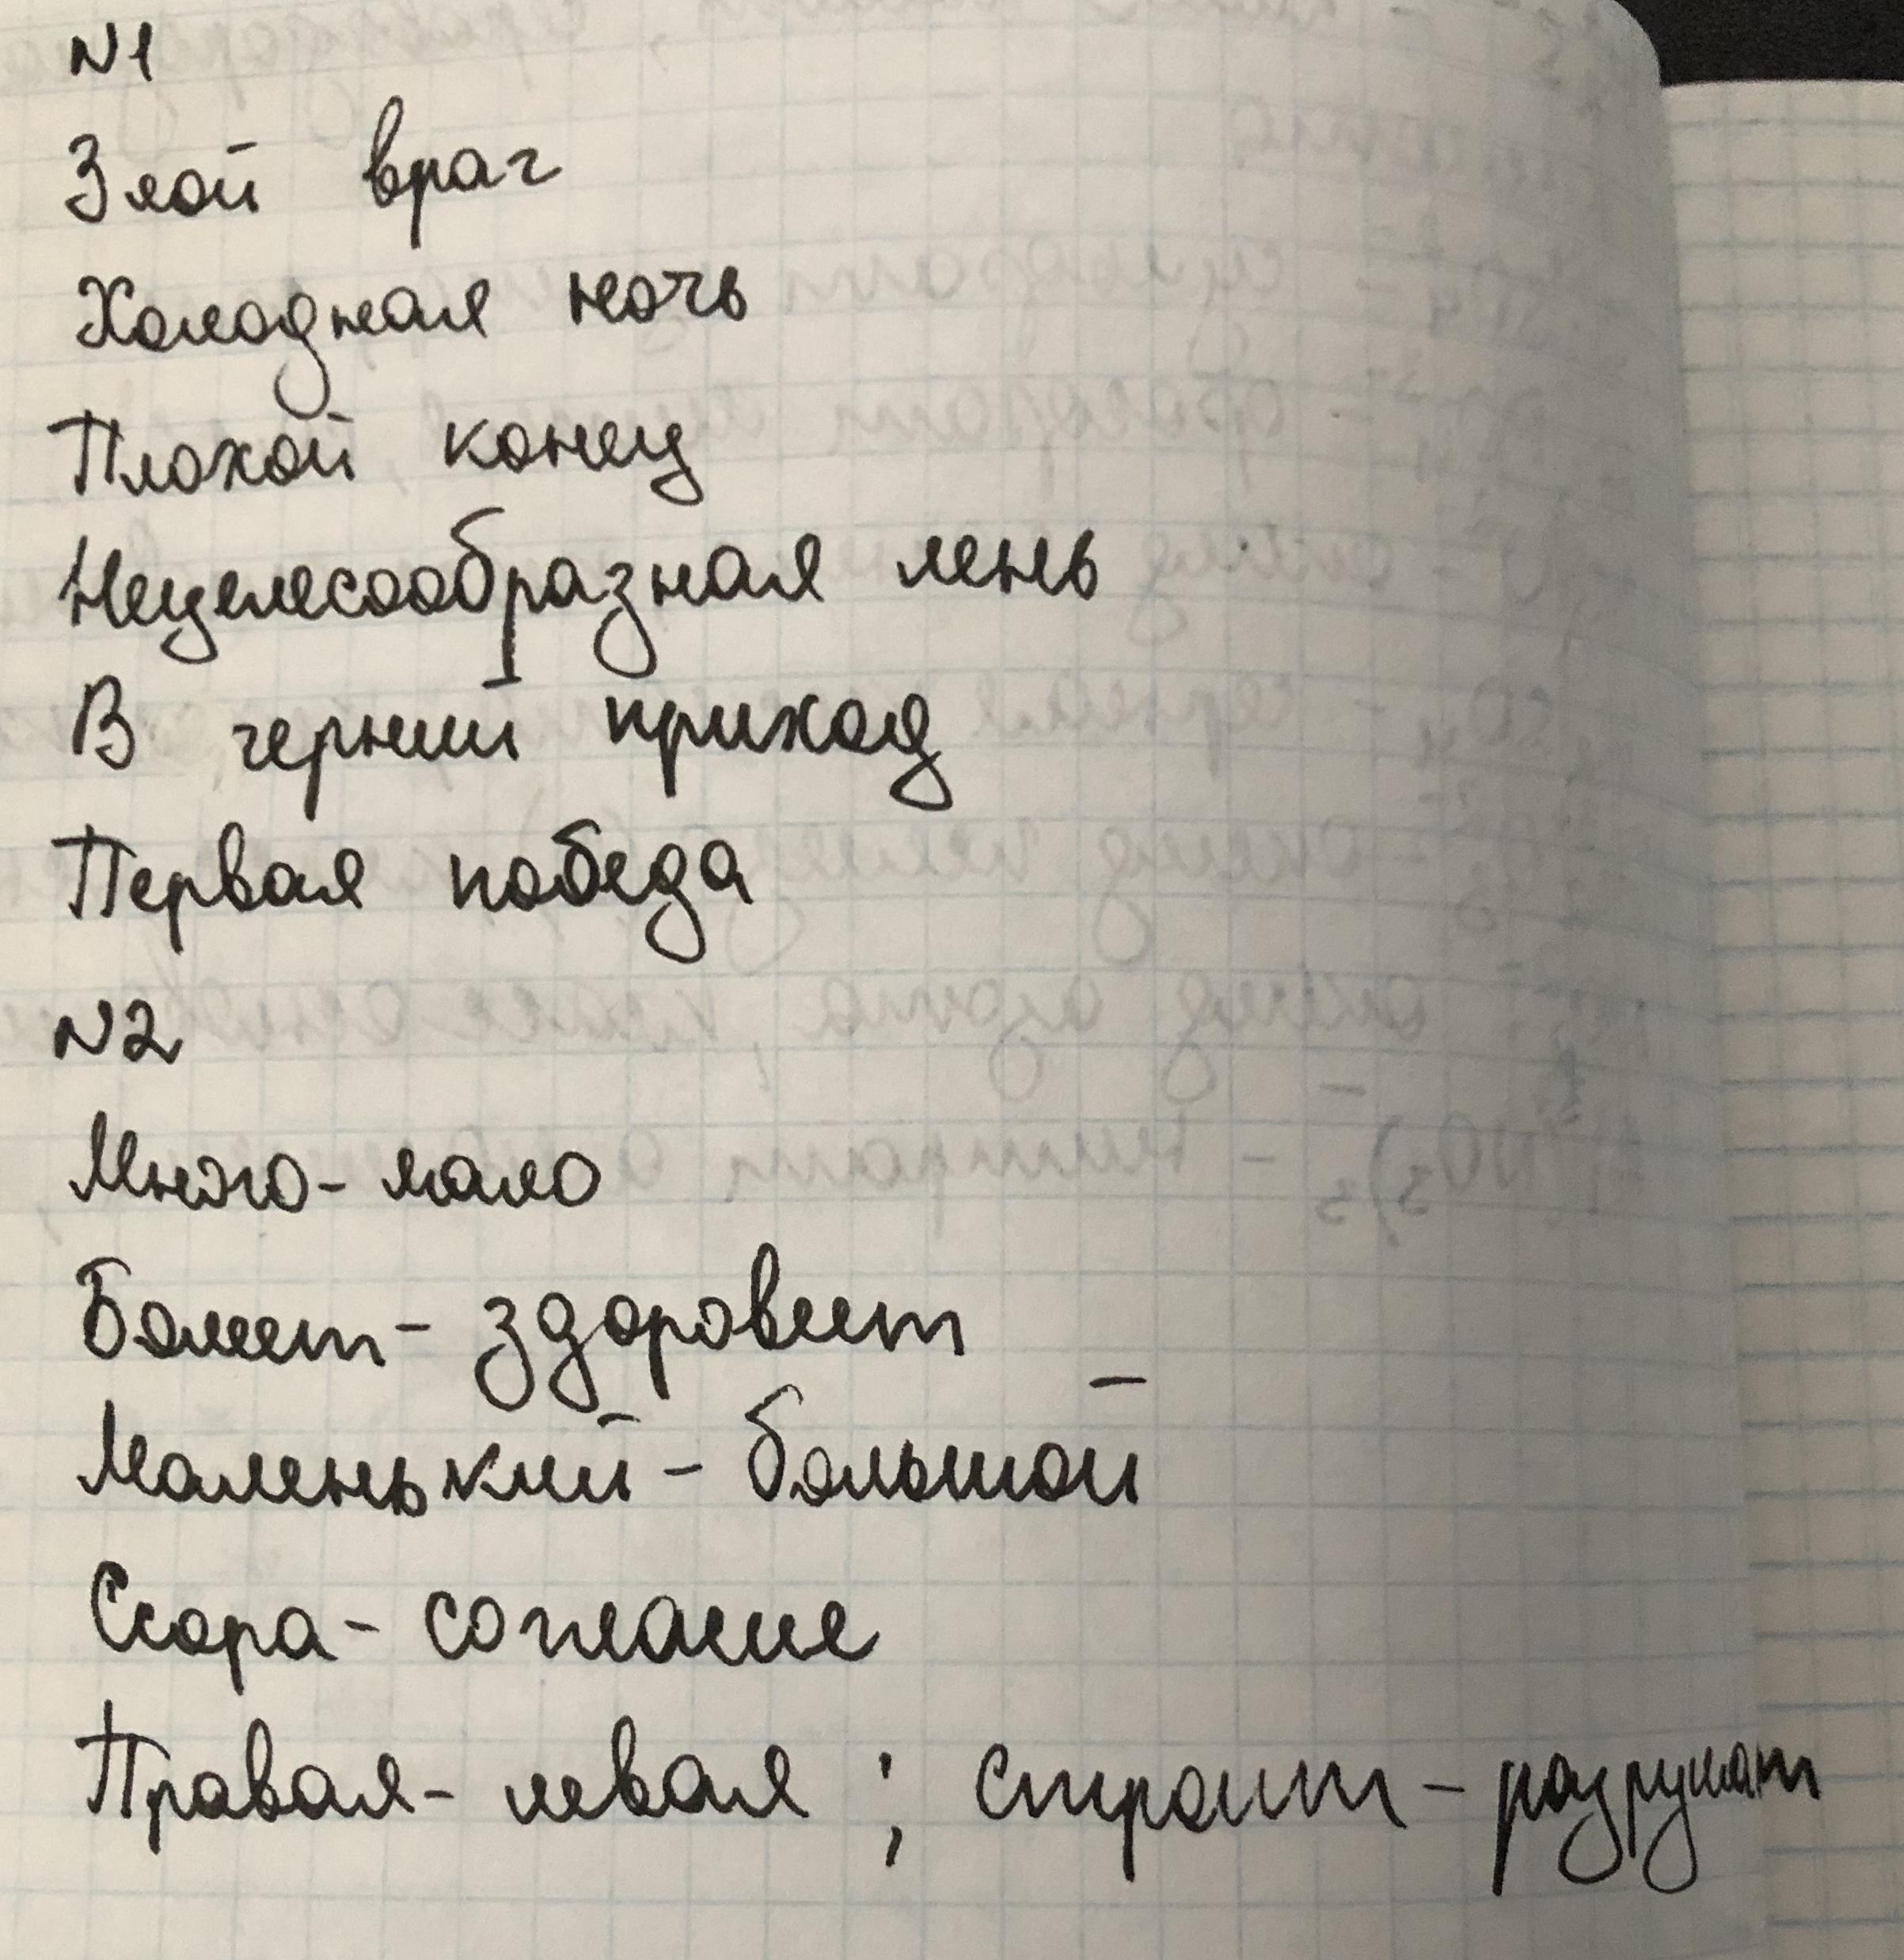 N1
Злой враг
Холодная ночь
Плохой конец
Нецелесообразная лень
В черный приход
Первая победа
N2
Много - мало
Болеет - здоровеет
Маленький - большой
Ссора - согласие
Правая - левая ; строит - разрушат